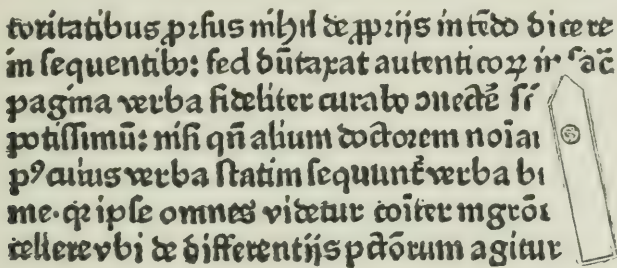 toritatibus pꝛſus nihil de ꝓpꝛijs intēdo dicere
in ſequentibꝫ: ſed dūtaxat autenticoꝝ
pagina verba fideliter curabo ꝯnectē
potiſſimū: niſi qn̄ alium doctoꝛem
pꝰ cuius verba ſtatim ſequunt̄ verba
me· qꝛ ipſe omnes videtur cōiter
cellere vbi de differentijs pctōrum agitur